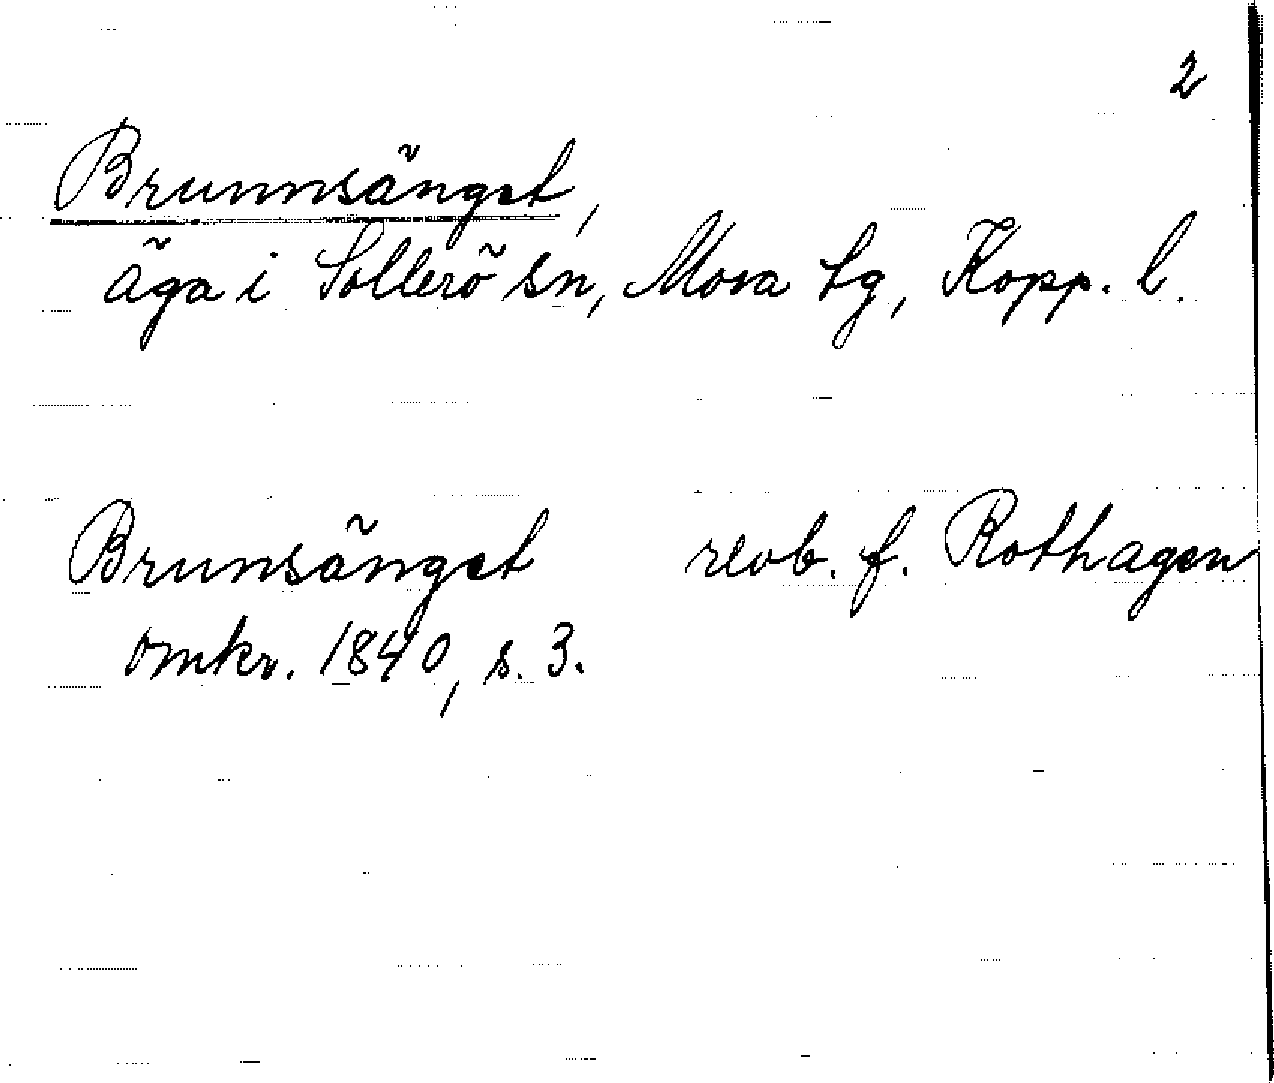 2
Brunnsänget,
äga i Sollerö sn, Mora tg, Kopp. l.
Brunsänget revb. f. Rothagen
omkr. 1840, s. 3.